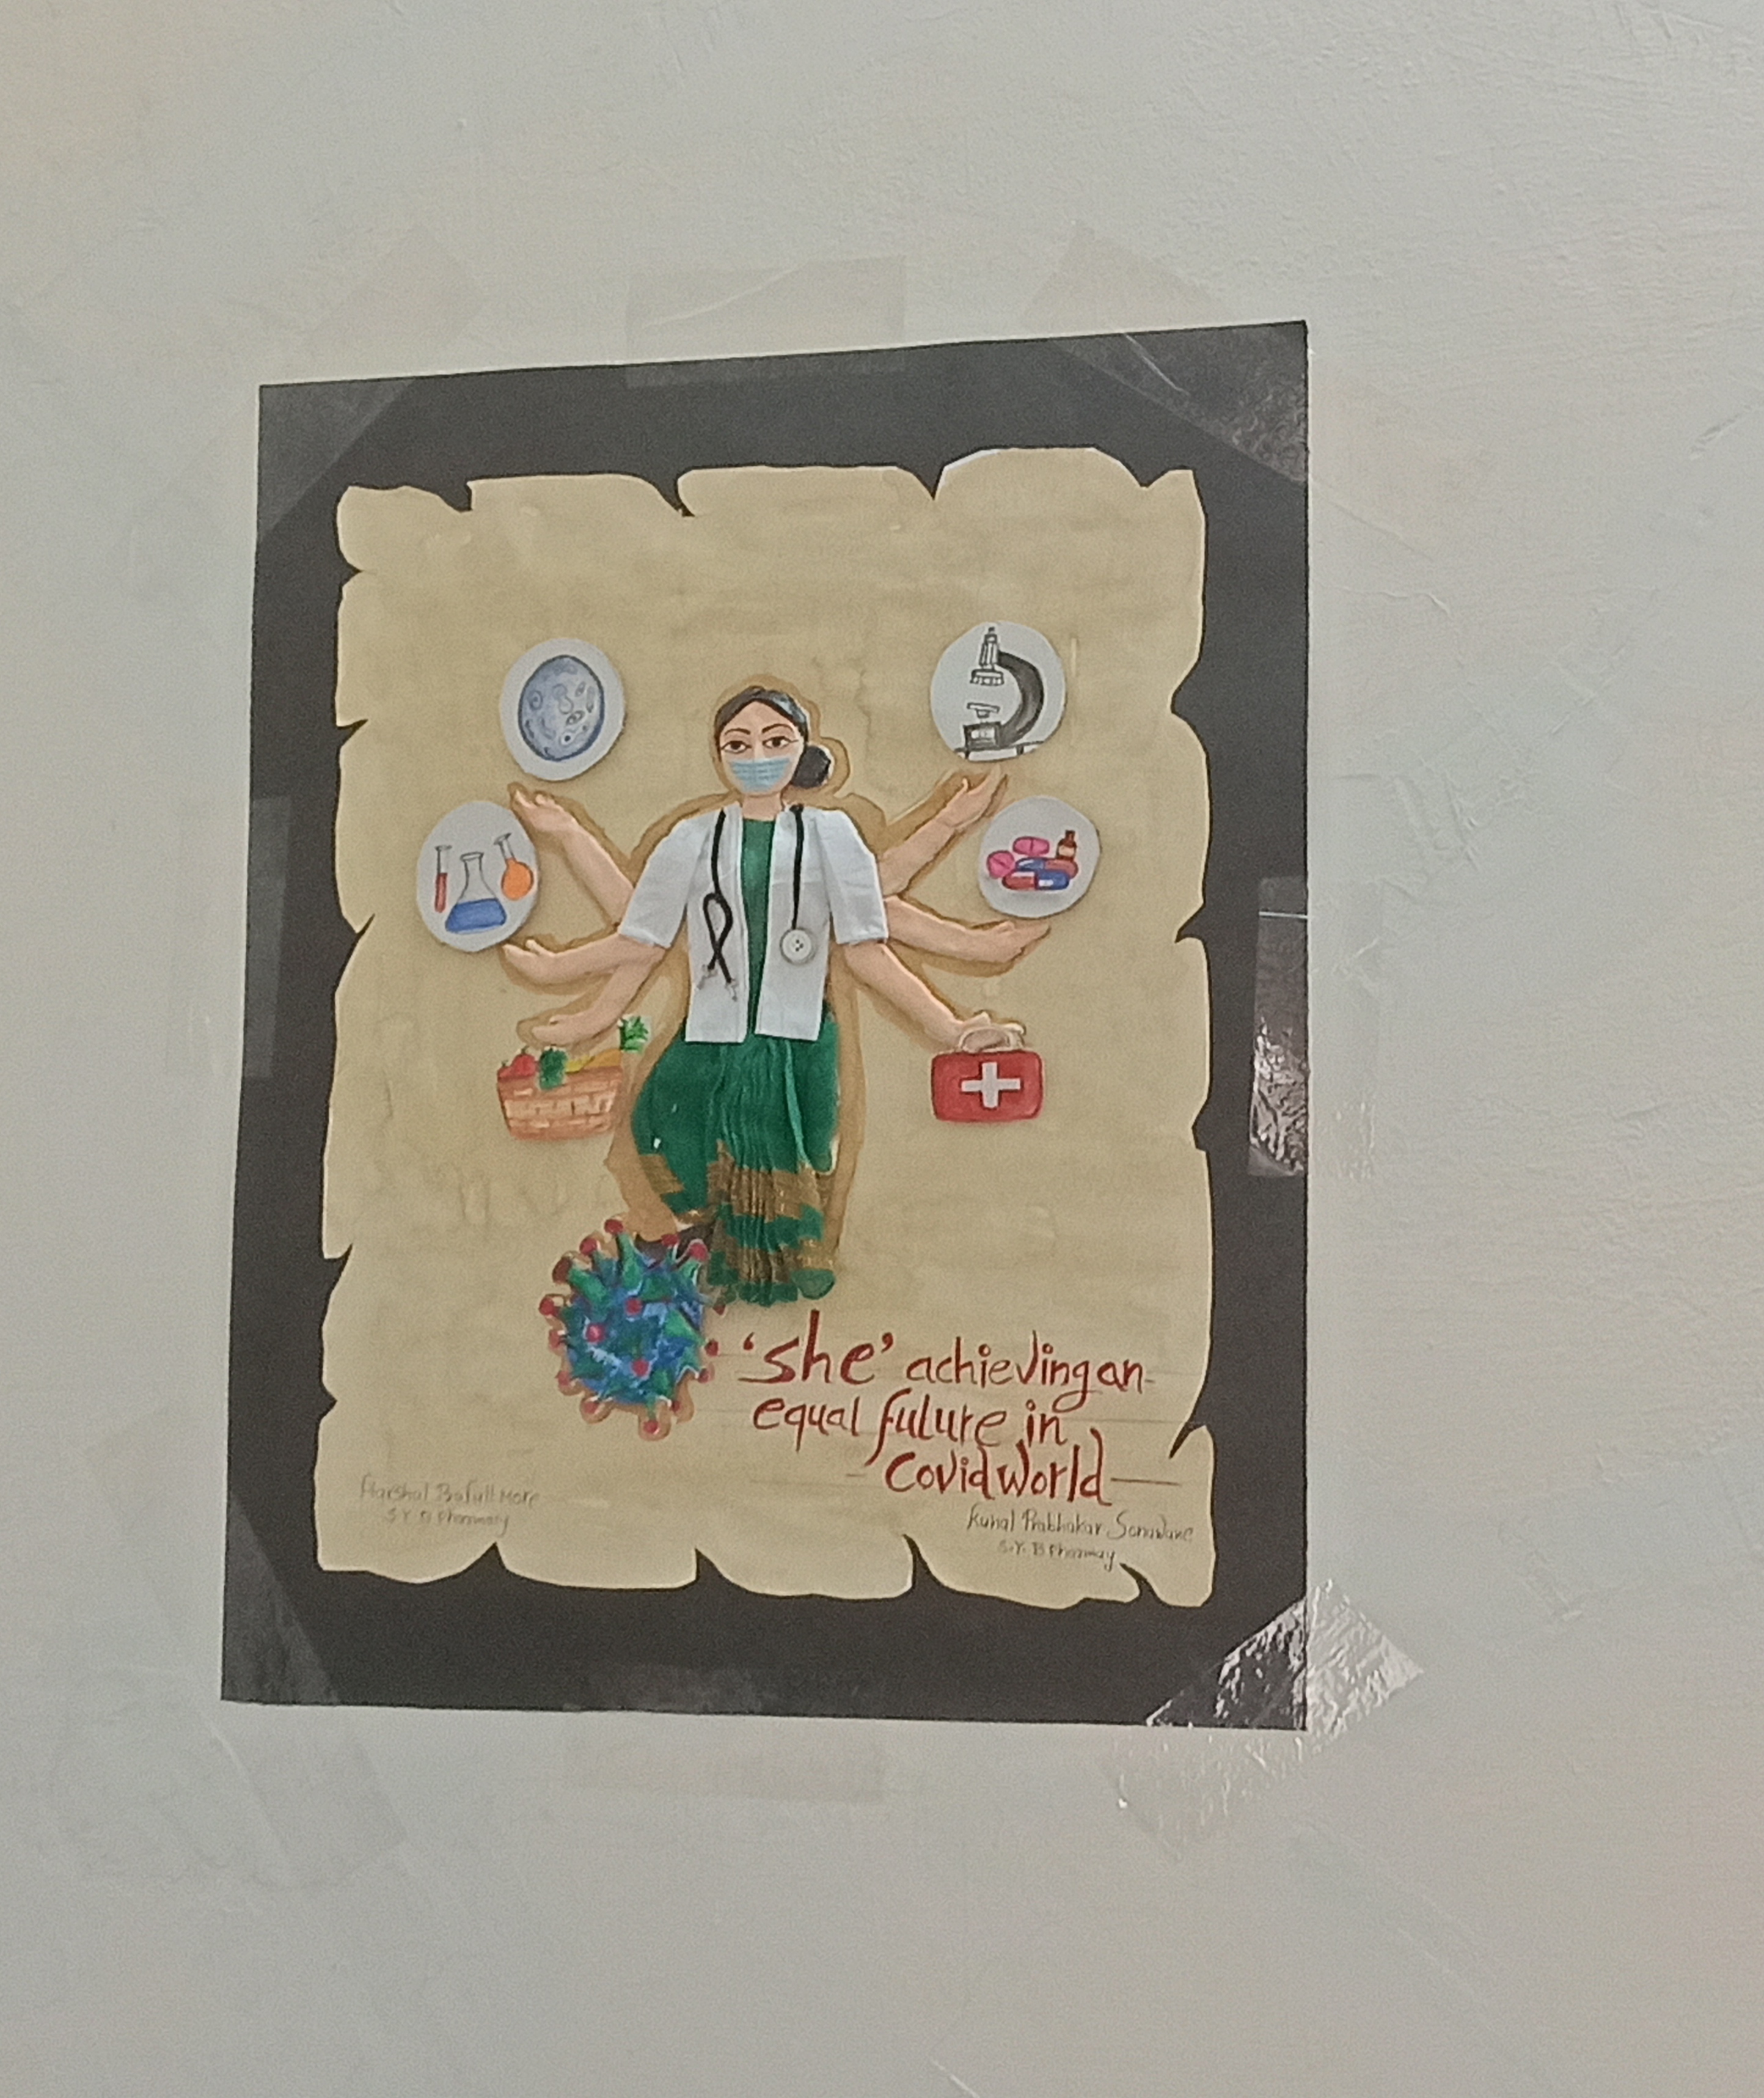 'she' achieving an
equal future in
Covid world
Harshal Prafull More
S.Y. B Pharmacy
Kunal Prabhakar Sonawane
S.Y. B Pharmacy